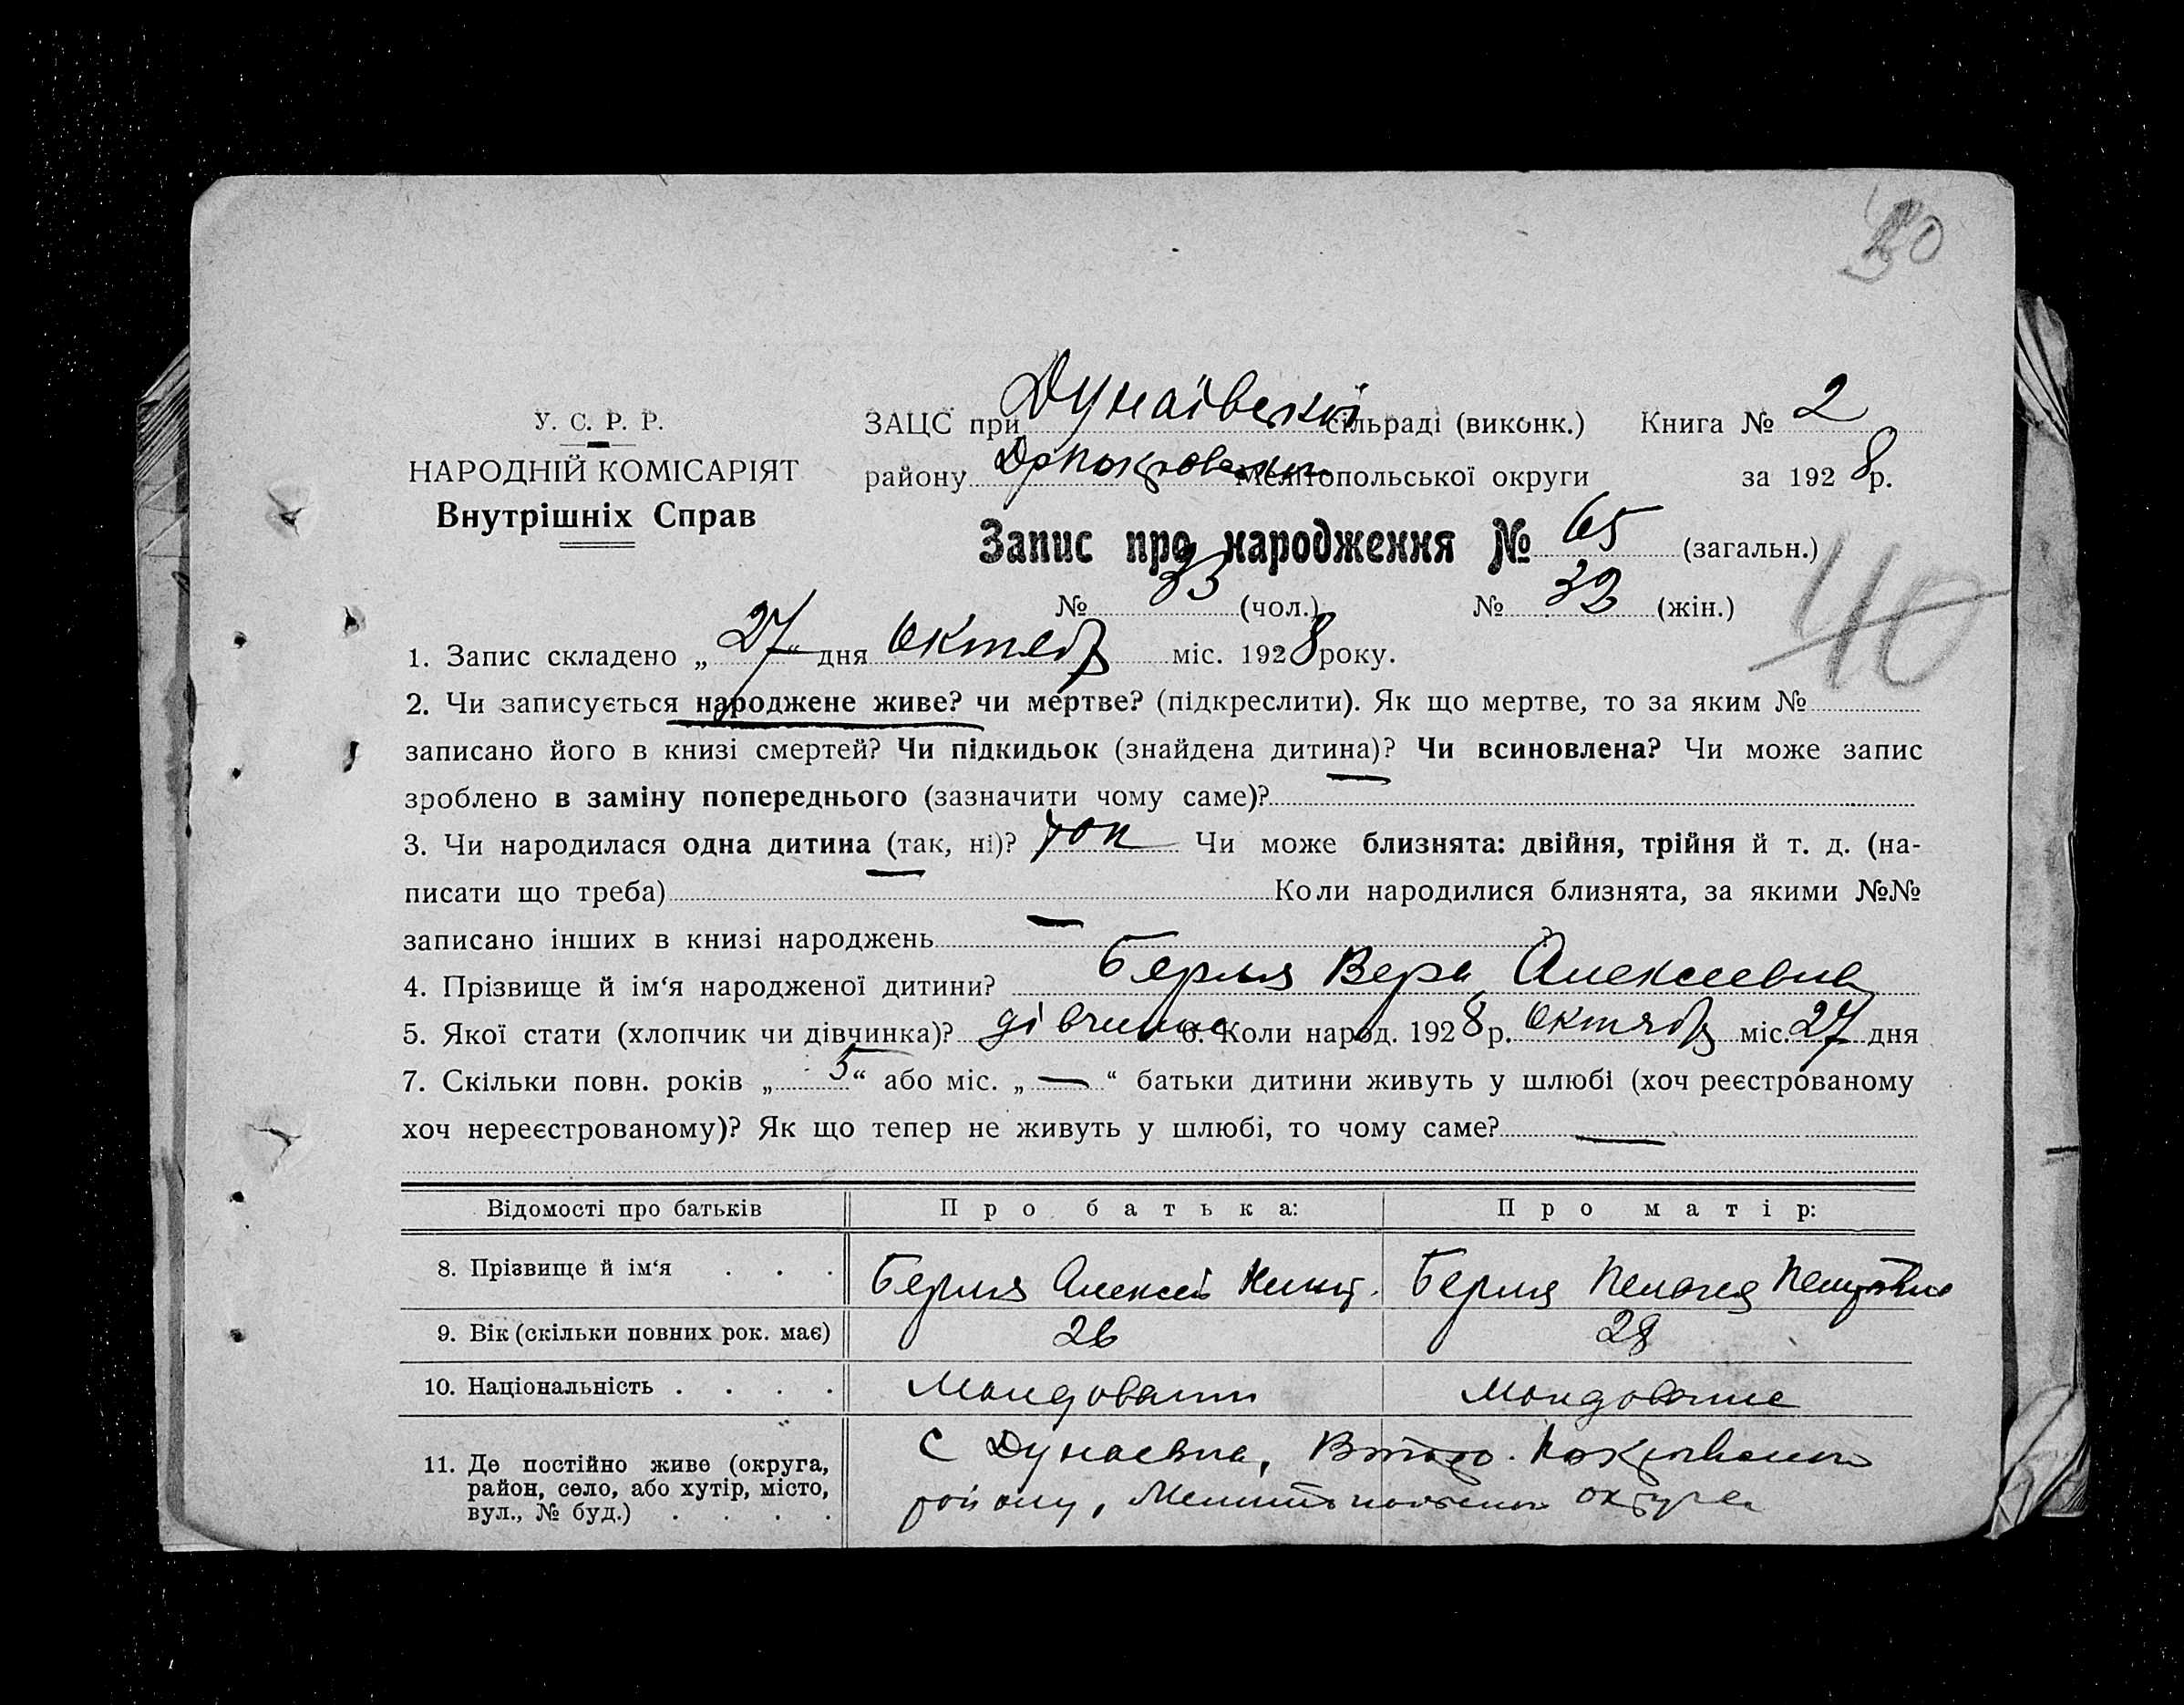 50
У. С. Р. Р.
НАРОДНІЙ КОМІСАРІЯТ
Внутрішніх Справ
ЗАЦС при Дунаївскій сільраді (виконк.) Книга № 2
району Мелітопольської округи за 1928 р.
Запис про народження № 65 (загальн.)
№ 33 (чол.) № 32 (жін.)
40
1. Запис складено „27“ дня Октябр міс. 1928 року.
2. Чи записується народжене живе? чи мертве? (підкреслити). Як що мертве, то за яким №
записано його в книзі смертей? Чи підкидьок (знайдена дитина)? Чи всиновлена? Чи може запис
зроблено в заміну попереднього (зазначити чому саме)? —
3. Чи народилася одна дитина (так, ні)? так Чи може близнята: двійня, трійня й т. д. (на-
писати що треба) — Коли народилися близнята, за якими №№
записано інших в книзі народжень — ?
4. Прізвище й ім‘я народженої дитини? Берля Вера Алексеевна
5. Якої стати (хлопчик чи дівчинка)? дівчина 6. Коли народ. 1928 р. Октябр міс. 27 дня
7. Скільки повн. років „5“ або міс. „—“ батьки дитини живуть у шлюбі (хоч реєстрованому
хоч нереєстрованому)? Як що тепер не живуть у шлюбі, то чому саме? —
Відомості про батьків Про батька: Про матір:
8. Прізвище й ім‘я . . . Берля Алексей Берля Пелагея Петровна
9. Вік (скільки повних рок. має) 26 28
10. Національність . . . .
11. Де постійно живе (округа,
район, село, або хутір, місто,
вул., № буд.) . . . .
С Дунаевка,
району, округа